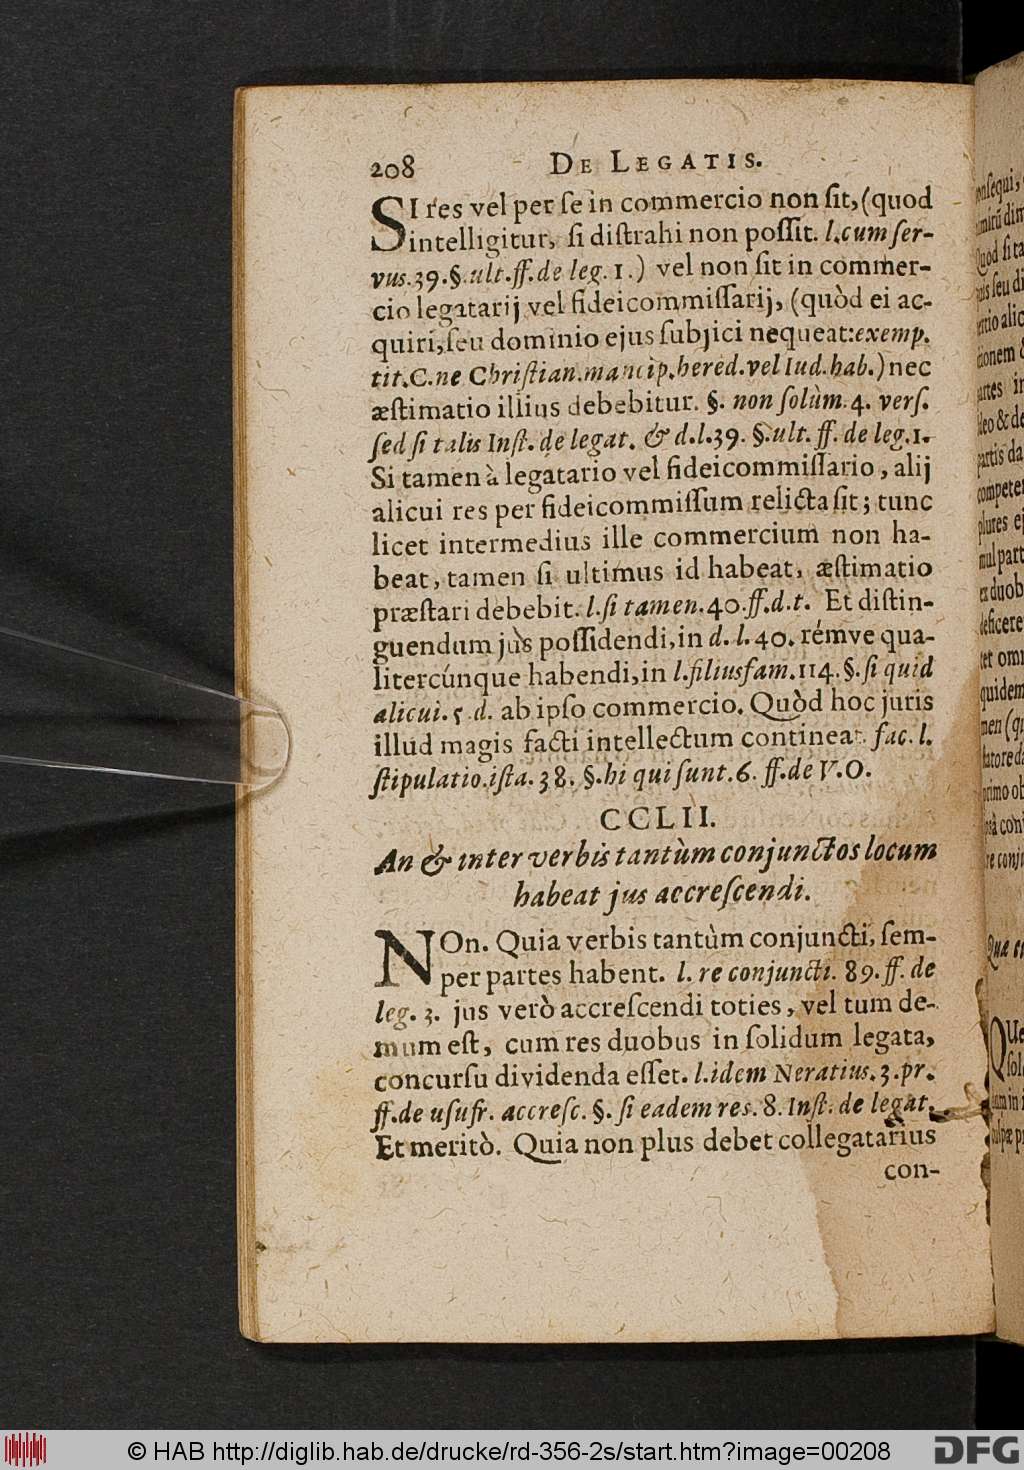 208 DE LEGATIS.
SI res vel per se in commercio non sit, (quod
intelligitur, si distrahi non possit. l. cum ser-
vus. 39. §. ult. ff. de leg. 1.) vel non sit in commer-
cio legatarij vel fideicommissarij, (quòd ei ac-
quiri, seu dominio ejus subjici nequeat: exemp.
tit. C. ne Christian. mancip. hered. vel Iud. hab.) nec
æstimatio illius debebitur. §. non solùm. 4. vers.
sed si talis Inst. de legat. & d. l. 39. §. ult. ff. de leg. 1.
Si tamen à legatario vel fideicommissario, alij
alicui res per fideicommissum relicta sit; tunc
licet intermedius ille commercium non ha-
beat, tamen si ultimus id habeat, æstimatio
præstari debebit. l. si tamen. 40. ff. d. t. Et distin-
guendum jus possidendi, in d. l. 40. rémve qua-
litercúnque habendi, in l. filiusfam. 114. §. si quid
alicui. 5. d. ab ipso commercio. Quòd hoc juris
illud magis facti intellectum contineat. fac. l.
stipulatio. ista. 38. §. hi qui sunt. 6. ff. de V. O.
CCLII.
An & inter verbis tantùm conjunctos locum
habeat jus accrescendi.
NOn. Quia verbis tantùm conjuncti, sem-
per partes habent. l. re conjuncti. 89. ff. de
leg. 3. jus verò accrescendi toties, vel tum de-
mum est, cum res duobus in solidum legata,
concursu dividenda esset. l. idem Neratius. 3. pr.
ff. de usufr. accresc. §. si eadem res. 8. Inst. de legat.
Et meritò. Quia non plus debet collegatarius
con-
© HAB http://diglib.hab.de/drucke/rd-356-2s/start.htm?image=00208
DFG